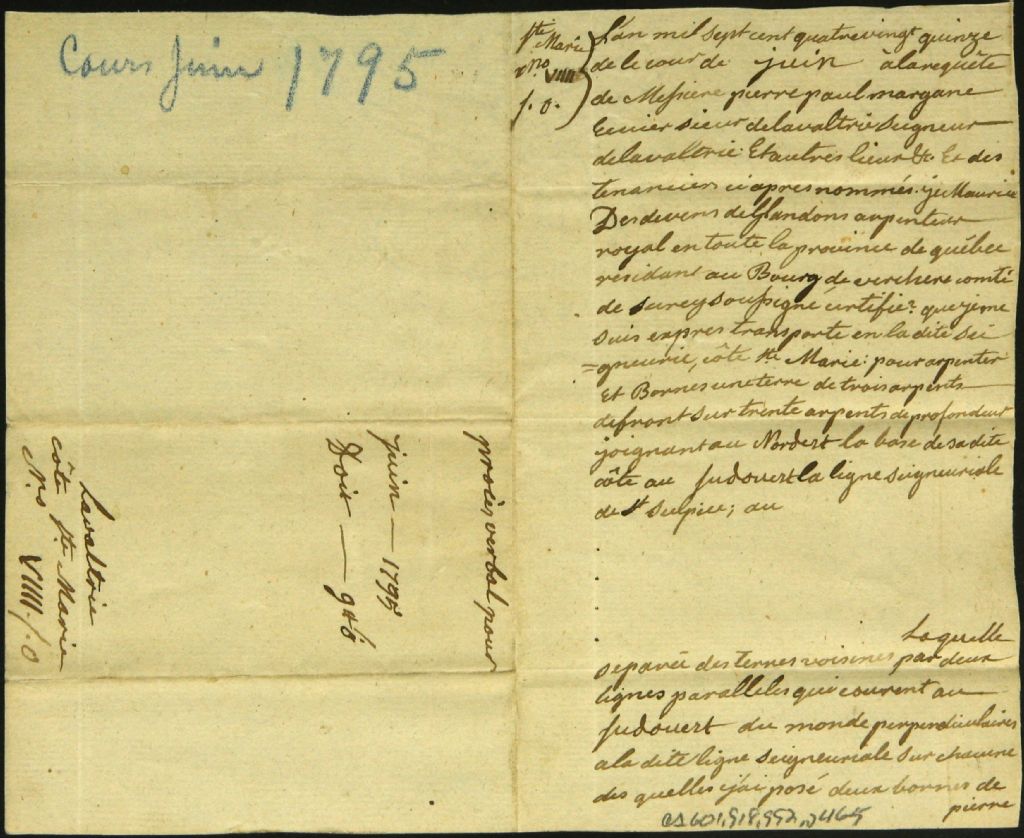 Cours Juin 1795
procès verbal pour
juin — 1795
Doit — 9#6
Lavaltrie
côte Ste Marie
No. VIIII f. 0
Ste Marie
No. VIIII
f. 0.
L'an mil sept cent quatrevingt quinze
de le cour de juin à la requête
de Messire pierre paul margane
Ecuier sieur delavaltrie seigneur
delavaltrie Et autres lieux &c. Et des
tenanciers ci apres nommés. je Maurice
Desdevens de Glandons arpenteur
royal en toute la province de québec
residant au Bourg de verchere comté
de surey soussigné certifie: que je me
suis expres transporté en la dite sei
=gneurie, côte Ste Marie: pour arpenter
Et Borner une terre de trois arpents
de front sur trente arpents de profondeur
joignant au Nordest la base de sa dite
côte au sudouest la ligne seigneuriale
de St Sulpice; au
Laquelle
separée des terres voisines par deux
lignes paralleles qui courent au
sudouest du monde perpendiculaires
a la dite ligne seigneuriale sur chacune
des quelles j'ai posé deux bornes de
pierre